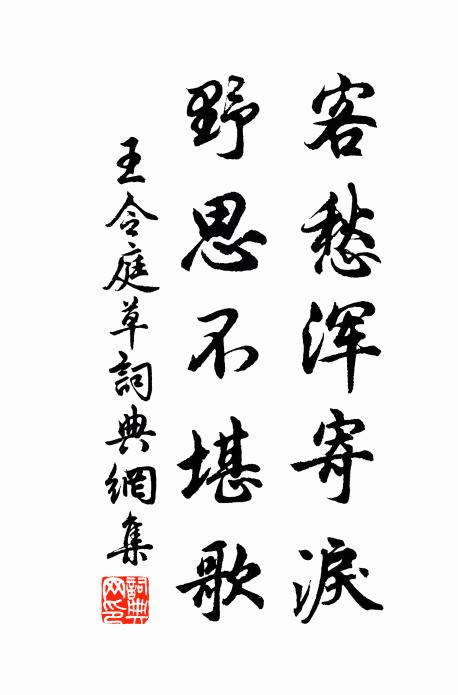 客愁浑寄淚
野思不堪歌
王令庭草詞典網集
詞典网印